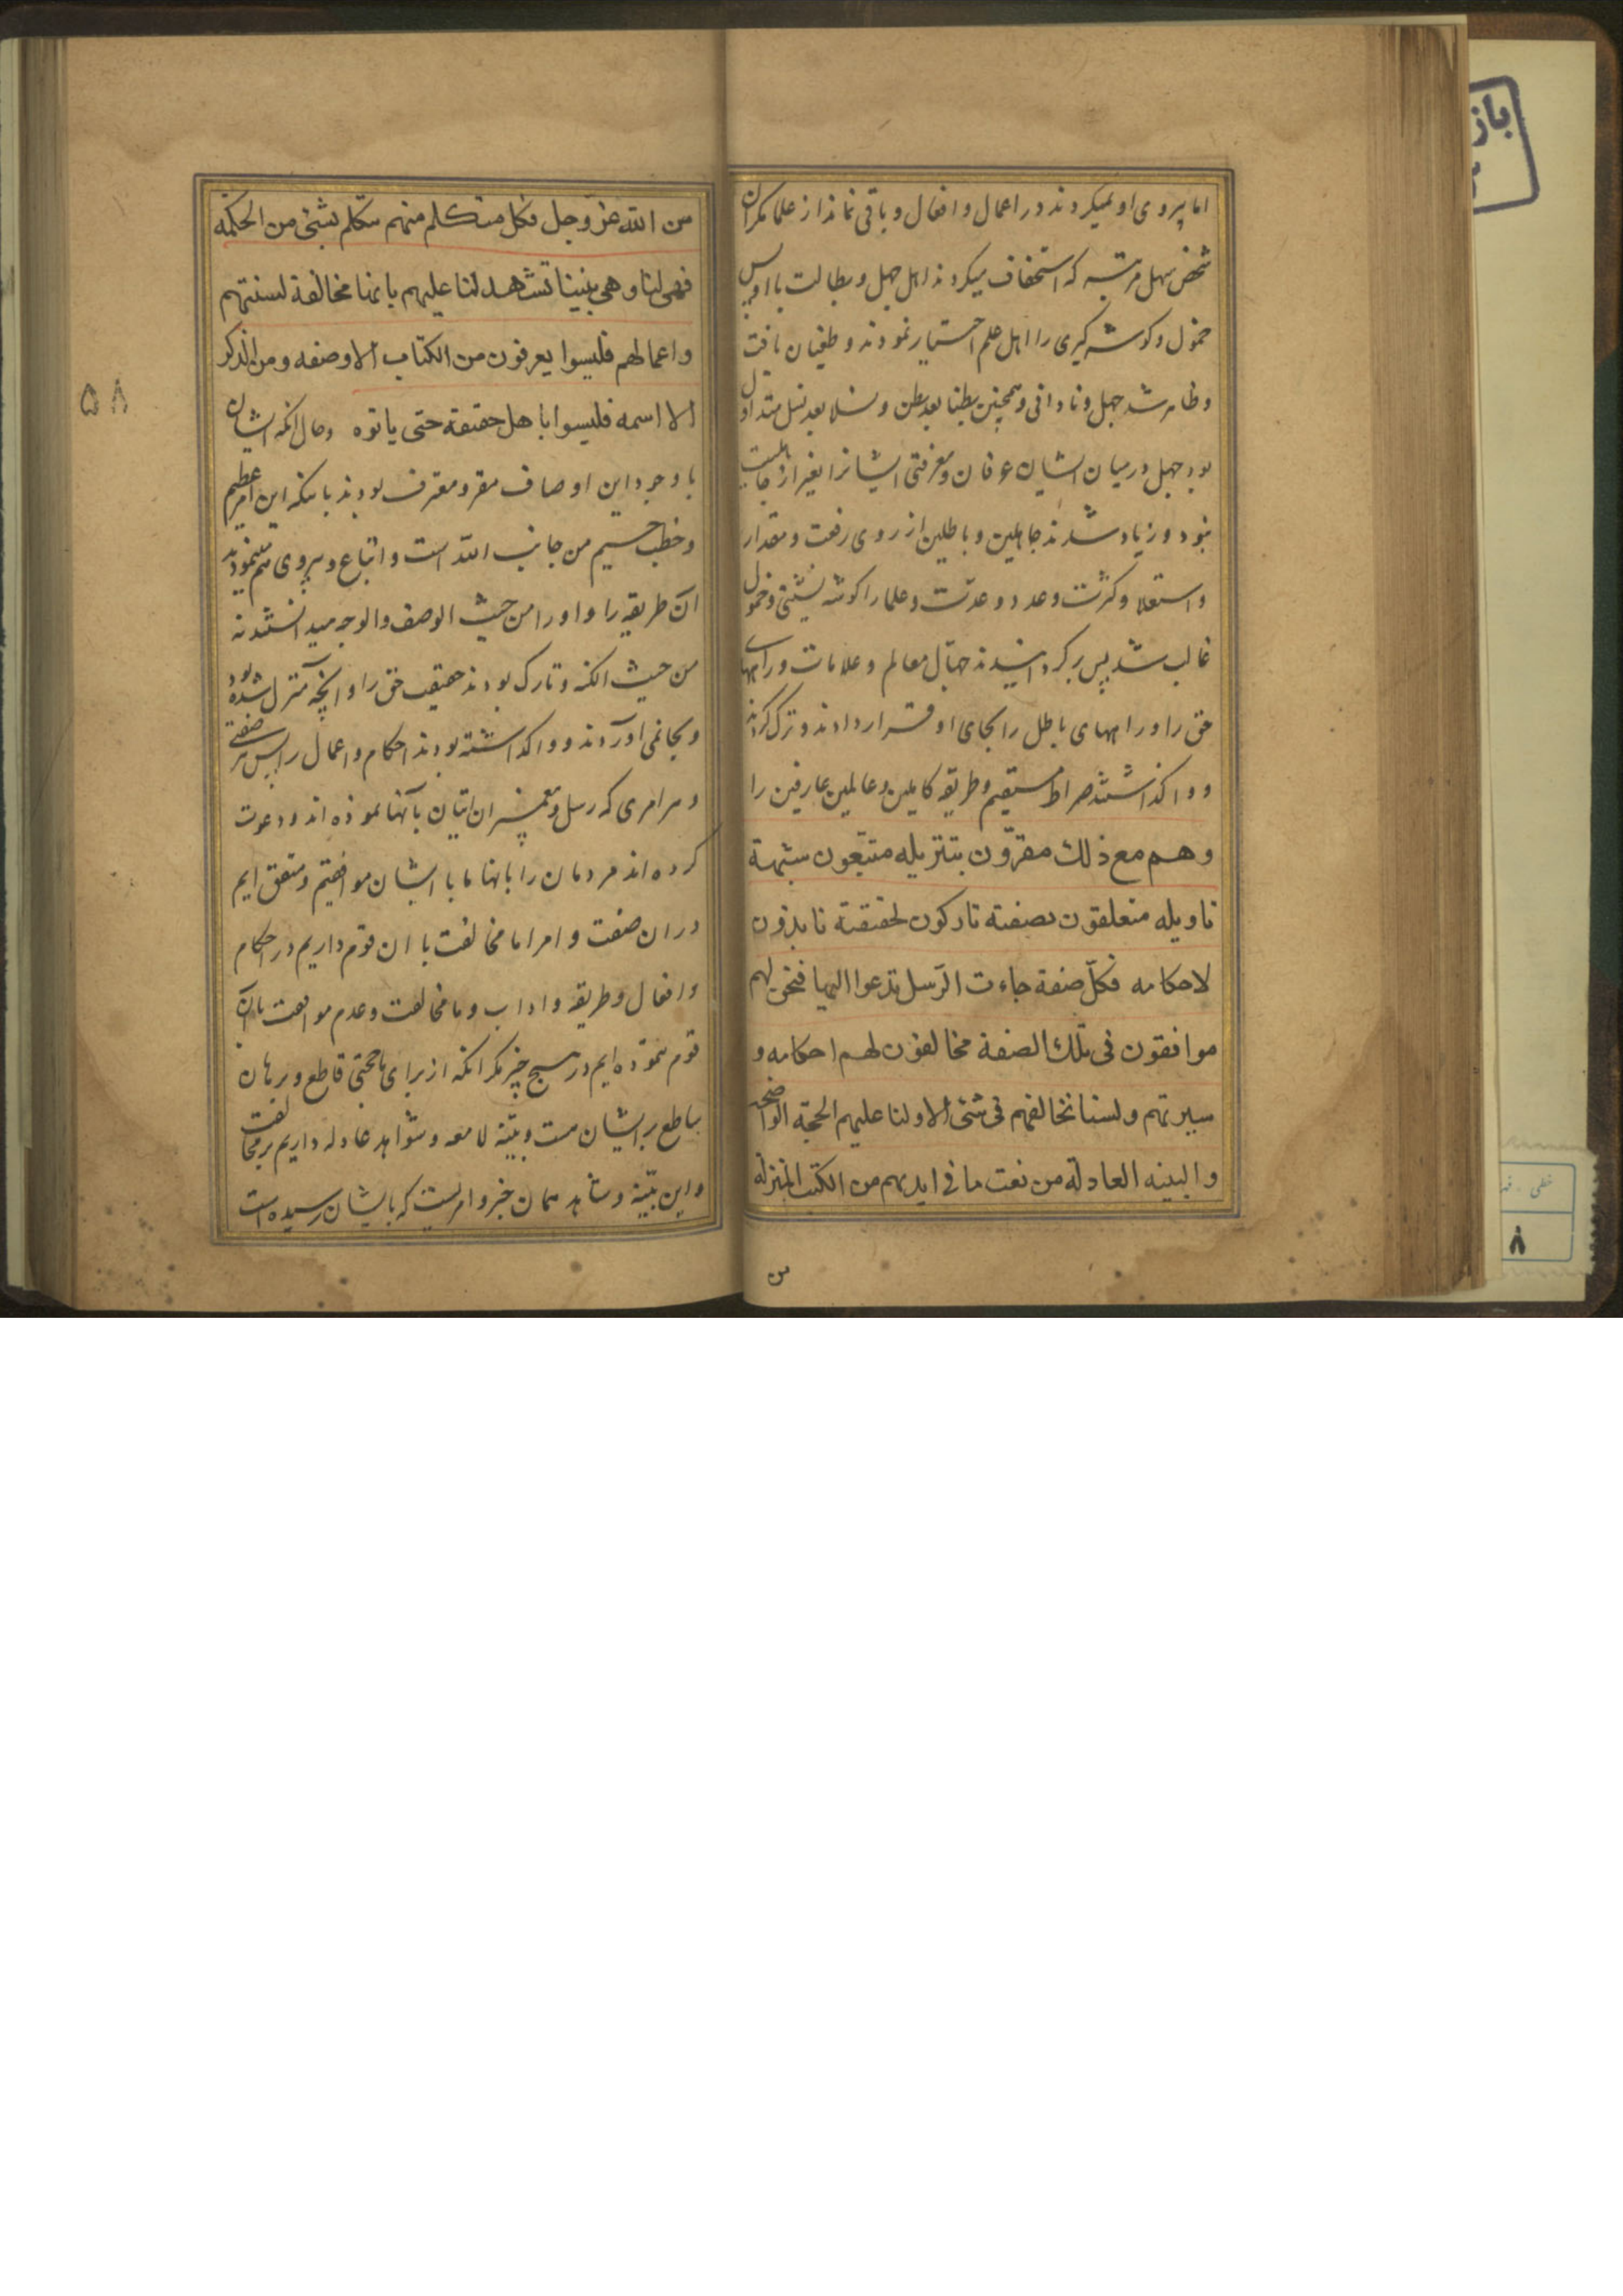 اما پیروی او نمیکردند در اعمال و افعال و باقی نماند از علما مکر ان
شخص سهل مرتبه که استخفاف میکردند اهل جهل و بطالت با او پس
خمول و کوشه کیری را اهل علم اختیار نمودند و طغیان یافت
و ظاهر شد جهل و نادانی و همچنین بطنا بعد بطن و نسلا بعد نسل متداول
بود جهل در میان ایشان عرفان و معرفتی ایشانرا بغیر از جاهلیت
نبود و زیاد شدند جاهلین و باطلین از روی رفعت و مقدار
و استعلا و کثرت و عدد و عدت و علما را کوشه نشینی و خمول
غالب شد پس برکردانیدند جهّال معالم و علامات و راههای
حق را و راههای باطل را بجای او قرار دادند و ترک کردند
و واکذاشتند صراط مستقیم و طریقه کاملین و عالمین عارفین را
وهم مع ذلك مقرّون بتنزیله متبعون بشبهة
تاویله متعلقون بصفته تارکون لحقیقته نابذون
لاحکامه فکلّ صفة جاءت الرّسل تدعوا الیها فنحن لهم
موافقون فی تلك الصفة مخالفون لهم احکامه و
سیرتهم ولسنا نخالفهم فی شئ الا ولنا علیهم الحجة الواضحه
والبینه العادلة من نعت ما فی ایدیهم من الکتب المنزلة
من
من الله عزّ وجل فکل متکلم منهم یتکلم بشئ من الحکمة
فهی لنا وهی بیننا تشهد لنا علیهم بانها مخالفة لسنتهم
واعمالهم فلیسوا یعرفون من الکتاب الا وصفه ومن الذکر
الا اسمه فلیسوا باهل حقیقة حتی یاتوه وحال انکه ایشان
با وجود این اوصاف مقر و معترف بودند باینکه این امر عظیم
و خطب جسیم من جانب الله است و اتباع و پیروی هم مینمودند
ان طریقه را و او را من حیث الوصف و الوجه میدانستند نه
من حیث الکنه و تارک بودند حقیقت حق را و انچه منزل شده بود
و بجا نمی اوردند و واکذاشته بودند احکام و اعمال را پس هر صفتی
و هر امری که رسل و پیغمبران اتیان بآنها نموده اند و دعوت
کرده اند مردمان را بانها ما با ایشان موافقیم و متفق ایم
در ان صفت و امر اما مخالفت با ان قوم داریم در احکام
و افعال و طریقه و اداب و ما مخالفت و عدم موافقت بان
قوم ننموده ایم در هیچ چیز مکر انکه از برای ما حجتی قاطع و برهان
ساطع بر ایشان هست و بیّنه لامعه و شواهد عادله داریم بر مخالفت
و این بیّنه و شاهد همان خبر و امریست که بایشان رسیده است
۵۸
باز
خطی
۸